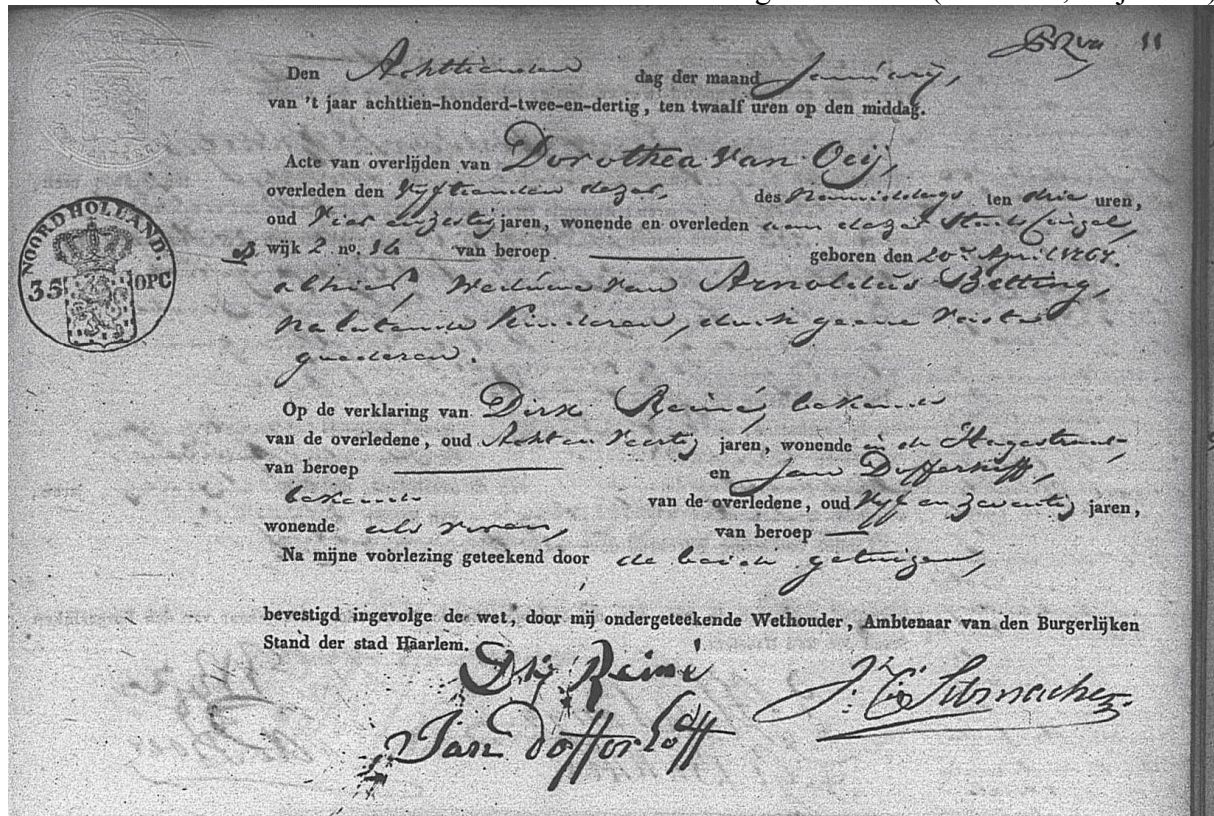 11
Den Achttienden dag der maand Januarij,
van 't jaar achttien-honderd-twee-en-dertig, ten twaalf uren op den middag.
Acte van overlijden van Dorothea van Oeij,
overleden den Vijftienden dezer, des Namiddags ten drie uren,
oud Vier en zestig jaren, wonende en overleden aan dezer Stads Cingel,
wijk 2 no. 16 van beroep geboren den 20n April 1767.
alhier, Weduwe van Arnoldus Betting,
nalatende Kinderen, doch geene vaste
goederen.
NOORD HOLLAND.
35 OPC
Op de verklaring van Dirk Reiné, bekende
van de overledene, oud Acht en Veertig jaren, wonende in de Hagestraat
van beroep en Jan Dofferhoff,
bekende van de overledene, oud Vijf en zeventig jaren,
wonende als voren, van beroep
Na mijne voorlezing geteekend door de beide getuigen,
bevestigd ingevolge de wet, door mij ondergeteekende Wethouder, Ambtenaar van den Burgerlijken
Stand der stad Haarlem.
Reiné
Jan dofforhoff